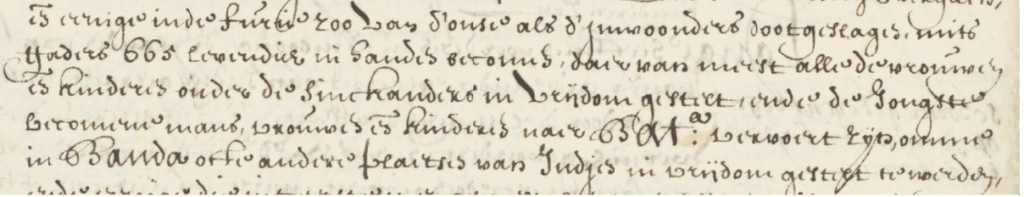 en eenige inde furie zoo van d'onse als d'jnwoonders dootgeslagen, mits
gaders 665 levendich in handen becomen, daer van meest alle de vrouwen
en kinderen onder de Sinckanders in vrijdom gestelt, ende de Jongste
becomene mans, vrouwen en kinderen naer Bat:a vervoert zijn, omme
in Banda ofte andere plaetsen van Indjen in vrijdom gestelt te werden,